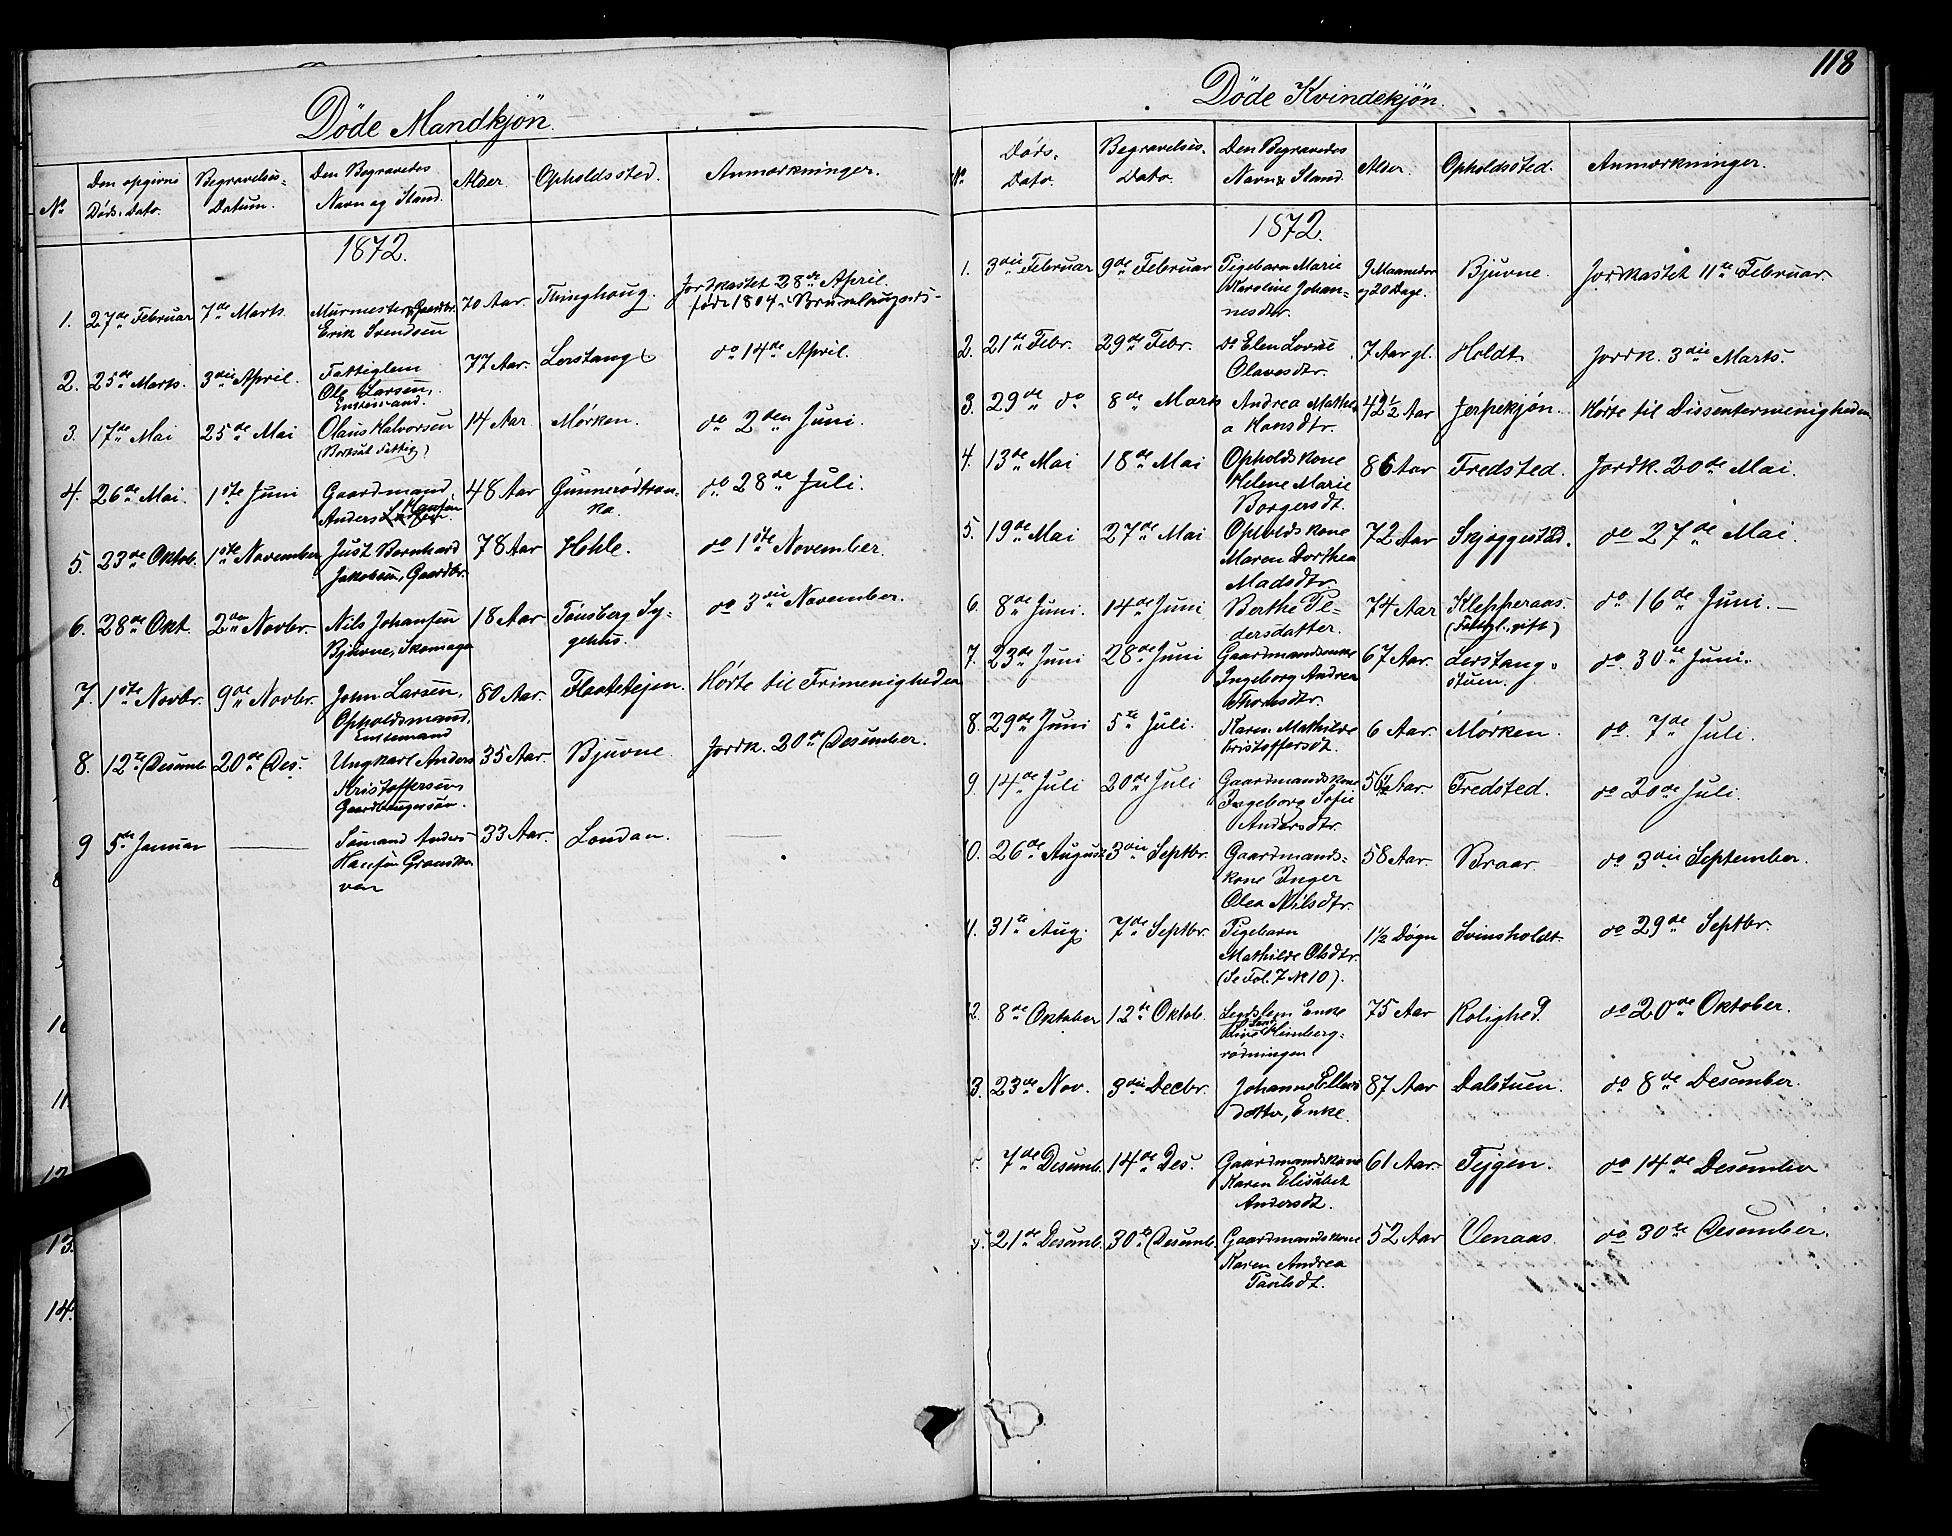 Döde Mandkjön.
No
Den opgivne
Døds-Dato.
Begravelses-
Datum.
Den Begravedes
Navn og Stand.
Alder.
Opholdssted.
Anmærkninger.
1872.
1. 27de Februar 7de Marts. Murmester
Erik Svendsen
70 Aar. Thinghoug. Jordkastet 28de April
født 1804 i
2. 25de Marts. 3die April. Fattiglem
Ole Larsen,
Enkemand.
77 Aar. Lerstang do 14de April.
3. 17de Mai 25de Mai Olaus Halvorsen
14 Aar Mørken. do 2den Juni.
4. 26de Mai. 1ste Juni Gaardmand
Anders Hansen
48 Aar Gunnerødtran-
ka. do 28de Juli.
5. 23de Oktob. 1ste November Just Bernhard
Jakobsen, Gaardbr.
78 Aar Hehle. do 1ste November.
6. 28de Okt. 2den Novbr. Nils Johansen
Bjuvne, Skomager
18 Aar Tønsberg Sy-
gehus. do 3die November.
7. 1ste Novbr. 9de Novbr. John Larsen,
Opholdsmand.
Enkemand
80 Aar. Flaatetejen. Hørte til Frimenigheden
8. 12te Desemb. 20de Des. Ungkarl Anders
Kristoffersen
Gaardbrugersøn.
35 Aar. Bjuvne. Jordk. 20de Desember.
9 5te Januar Sømand Anders
Hansen Granska-
ven
33 Aar. London.
118
Döde Kvindekjön.
No
Døds-
Dato.
Begravelses-
Dato.
Den Begravedes
Navn & Stand.
Alder.
Opholdssted.
Anmærkninger.
1872.
1. 3die Februar 9de Februar Pigebarn Marie
Karoline Johan-
nesdtr.
9 Maaneder
og 20 Dage. Bjuvne. Jordkastet 11te Februar
2. 21de Febr. 29de Febr. do Elen Lovise
Olavesdtr.
7 Aar gl. Holdt Jordk. 3die Marts.
3. 29de do 8de Marts Andrea Mathe-
a Hansdtr.
42½ Aar Jerpekjøn. Hørte til Dissentermenigheden
4. 13de Mai 18de Mai Opholdskone
Helene Marie
Borgersdt.
86 Aar Fredsted. Jordk. 20de Mai.
5. 19de Mai 27de Mai Opholdskone
Maren Dorthea
Madsdtr.
72 Aar Skjæggestad. do 27de Mai.
6. 8de Juni. 14de Juni Berthe Pe-
dersdatter.
74 Aar Klepperaas.
(Fattigl., gift) do 16de Juni.
7. 23de Juni 28de Juni Gaardmandsenke
Ingeborg Andrea
Thorsdtr.
67 Aar. Lerstang-
stuen. do 30te Juni.
8. 29de Juni 5te Juli. Karen Mathilde
Kristoffersdt.
6 Aar. Mørken. do. 7de Juli.
9. 14de Juli 20de Juli Gaardmandskone
Ingeborg Sofie
Andersdtr.
56½ Aar. Fredsted. do 20de Juli.
10. 26de August 3die Septbr. Gaardmands-
kone Inger
Olea Nilsdtr.
58 Aar. Braar. do 3die September.
11. 31te Aug. 7de Septbr. Pigebarn
Mathilde Olsdtr.
(Se Fol. 7 No 10).
1½ Døgn Svinsholdt. do 29de Septbr.
12. 8de Oktober 12te Oktob. Enke
Himberg-
rødningen
75 Aar Rolighed. do 20de Oktober.
13. 23de Nov. 3die Decbr. Johanne Ellevs
datter, Enke.
87 Aar Dalstuen. do 8de Desember.
7de Desemb. 14de Des. Gaardmandskone
Karen Elisabet
Andersdt.
61 Aar. Tejgen. do 14de Desember
21de Desemb. 30te Desemb. Gaardmandskone
Karen Andrea
Paulsdt.
52 Aar Venaas. do 30te Desember.
10
11.
12.
13.
14.